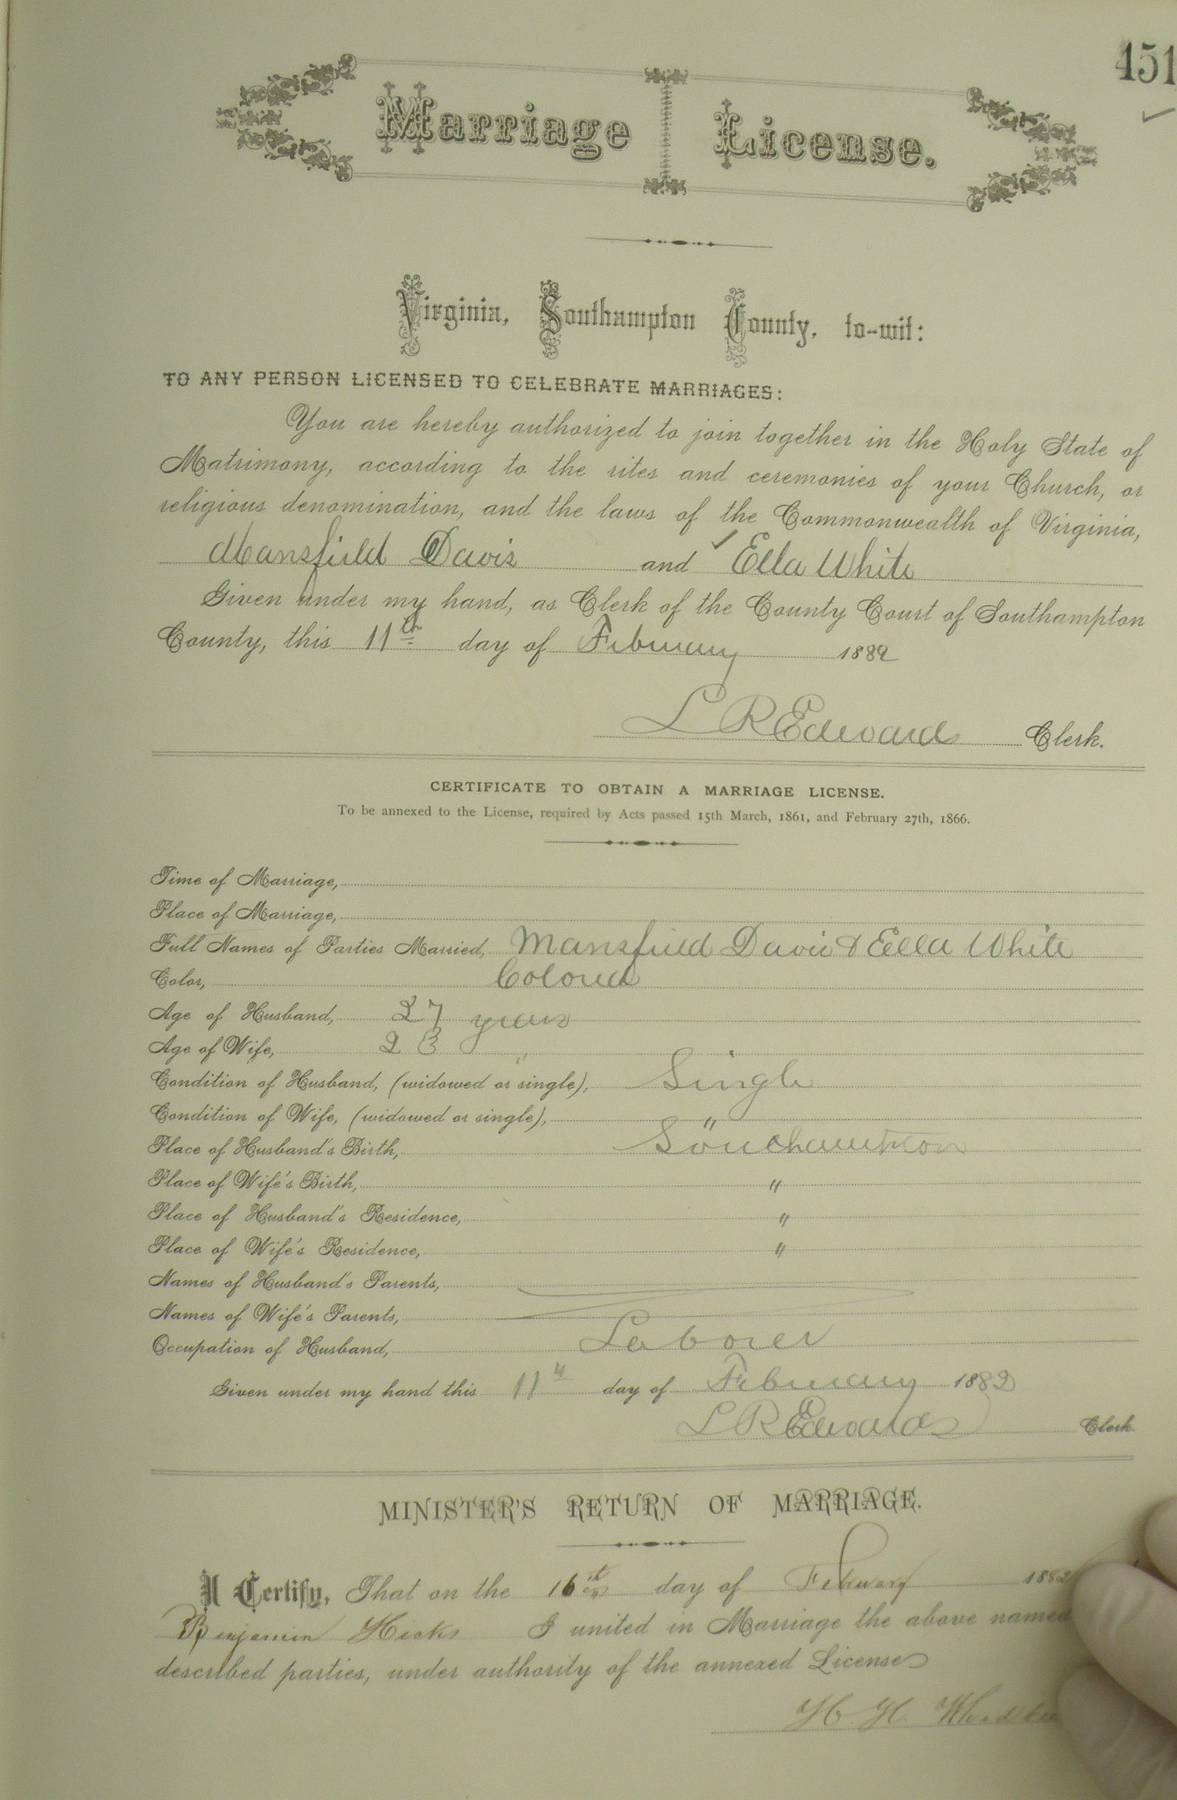 451
Marriage License.
Virginia, Southampton County, to-wit:
TO ANY PERSON LICENSED TO CELEBRATE MARRIAGES:
You are hereby authorized to join together in the Holy State of
Matrimony, according to the rites and ceremonies of your Church, or
religious denomination, and the laws of the Commonwealth of Virginia,
Mansfield Davis and Ella White
Given under my hand, as Clerk of the County Court of Southampton
County, this 11th day of February 1882
L R Edwards Clerk.
CERTIFICATE TO OBTAIN A MARRIAGE LICENSE.
To be annexed to the License, required by Acts passed 15th March, 1861, and February 27th, 1866.
Time of Marriage,
Place of Marriage,
Full Names of Parties Married, Mansfield Davis & Ella White
Color, Colored
Age of Husband, 27 years
Age of Wife, 23 "
Condition of Husband, (widowed or single), Single
Condition of Wife, (widowed or single), "
Place of Husband's Birth, Southampton
Place of Wife's Birth, "
Place of Husband's Residence, "
Place of Wife's Residence, "
Names of Husband's Parents,
Names of Wife's Parents,
Occupation of Husband, Laborer
Given under my hand this 11th day of February 1882
L R Edwards Clerk
MINISTER'S RETURN OF MARRIAGE.
I Certify, That on the 16th day of February 1882
Benjamin Hicks I united in Marriage the above named
described parties, under authority of the annexed License
H. H.